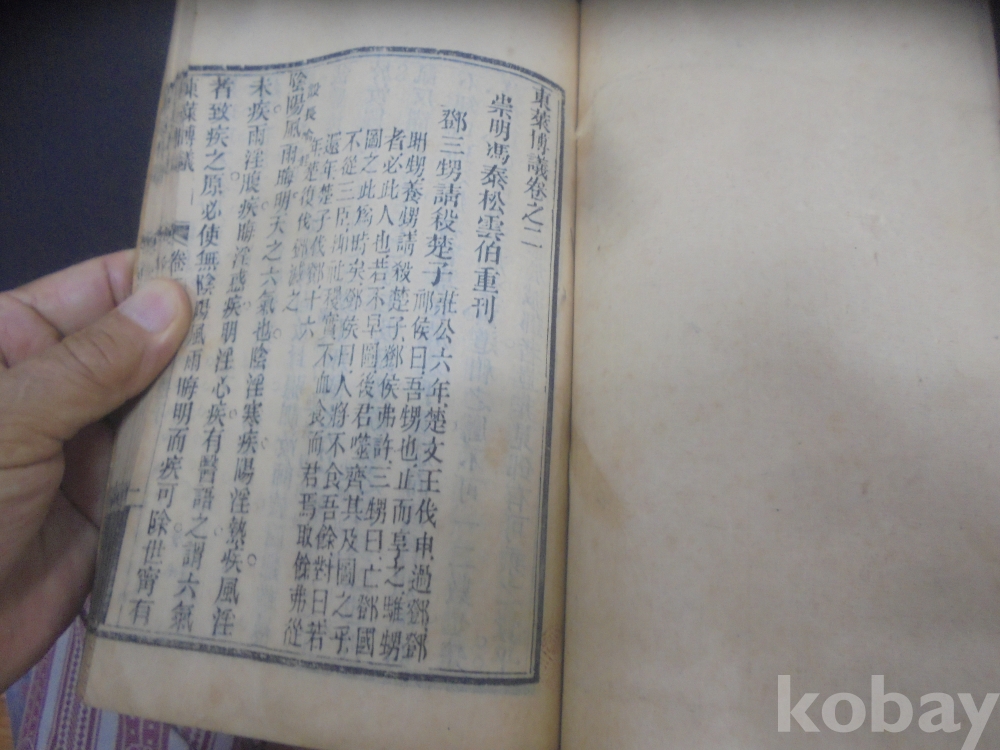 東萊博議卷之二
崇明馮泰松雲伯重刊
鄧三甥請殺楚子 莊公六年楚文王伐申過鄧鄧
祁侯曰吾甥也止而享之騅甥
聃甥養甥請殺楚子鄧侯弗許三甥曰亡鄧國
者必此人也若不早圖後君噬齊其及圖之乎
圖之此爲時矣鄧侯曰人將不食吾餘對曰若
不從三臣抑社稷實不血食而君焉取餘弗從
還年楚子伐鄧十六
年楚復伐鄧滅之
陰陽風雨晦明天之六氣也陰淫寒疾陽淫熱疾風淫
末疾雨淫腹疾晦淫惑疾明淫心疾有醫語之謂六氣
者致疾之原必使無陰陽風雨晦明而疾可除世甯有
東萊博議
卷
二
kobay